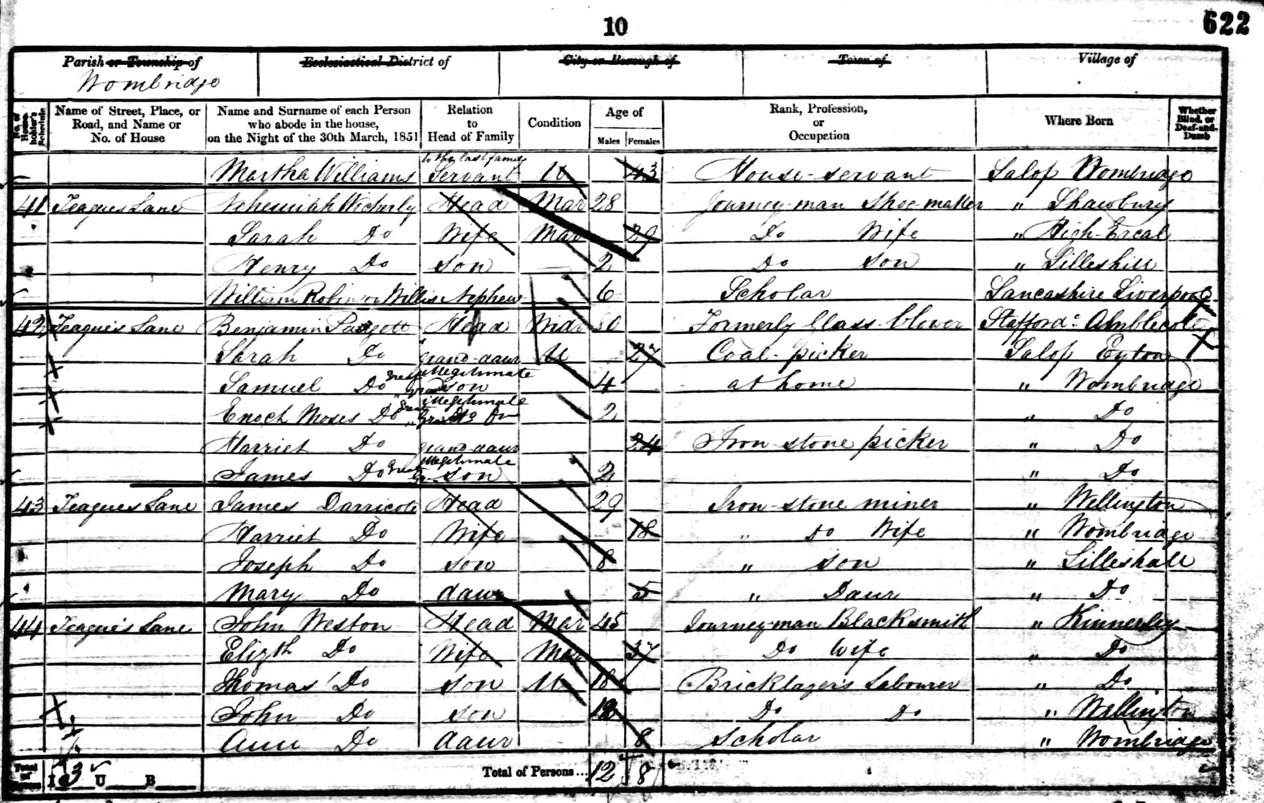 10
622
Parish or Township of Ecclesiastical District of City or Borough of Town of Village of
Wombridge
No. of Householder's Schedule Name of Street, Place, or Road, and Name or No. of House Name and Surname of each Person who abode in the house, on the Night of the 30th March, 1851 Relation to Head of Family Condition Age of Males Females Rank, Profession, or Occupation Where Born Whether Blind, or Deaf-and-Dumb
to the last family
Martha Williams Servant U 43 House-servant Salop Wombridge
41 Teagues Lane Nehemiah Wicherly Head Mar 28 Journeyman Shoe-maker " Shawbury
Sarah Do Wife Mar 29 Do Wife " High-Ercal
Henry Do son 2 Do son " Lilleshill
William Robinson Willis Nephew 6 Scholar Lancashire Liverpool
42 Teague's Lane Benjamin Head Widr 80 Formerly Glass-blower Stafford: Amblecote
Sarah Do grand-daur U 27 Coal-picker Salop Eyton
Samuel Do great illegitimate grand son 4 at home " Wombridge
Enoch Moses Do great illegitimate grand 2 " Do
Harriet Do grand-daur 24 Iron-stone picker " Do
James Do great illegitimate son 2 " Do
43 Teagues Lane James Darricote Head 29 Iron-stone miner " Wellington
Harriet Do Wife 18 " do Wife " Wombridge
Joseph Do son 8 " son " Lilleshall
Mary Do daur 5 " Daur " Do
44 Teague's Lane John Weston Head Mar 45 Journeyman Blacksmith " Kinnerley
Elizth Do Wife Mar 37 Do Wife " Do
Thomas Do son U 18 Bricklayer's Labourer " Do
John Do son 12 Do Do " Wellington
Ann Do daur 8 Scholar " Wombridge
Total of Houses I 3 U B Total of Persons... 12 8